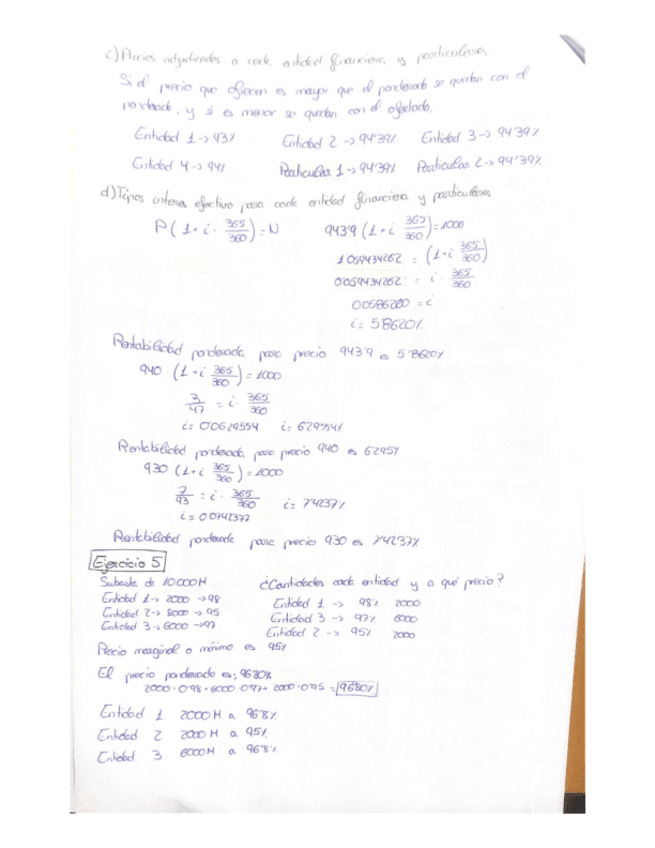 c) Precios adjudicados a cada entidad financiera y particulares.
Si el precio que ofrecen es mayor que el ponderado se quedan con el
ponderado, y si es menor se quedan con el ofertado.
Entidad 1 -> 93% Entidad 2 -> 94'39% Entidad 3 -> 94'39%
Entidad 4 -> 94% Particular 1 -> 94'39% Particular 2 -> 94'39%
d) Tipos interes efectivo para cada entidad financiera y particulares
P(1+i·365/360)=N 943'9(1+i 365/360)=1000
1'059434262 = (1+i 365/360)
0'059434262 = i· 365/360
0'0586200 = i
i= 5'8620%
Rentabilidad ponderada para precio 943'9 es 5'8620%
940·(1+i 365/360)=1000
3/47 = i· 365/360
i= 0'0629554 i= 6'29554%
Rentabilidad ponderada para precio 940 es 6'295%
930 (1+i 365/360)=1000
7/93 = i· 365/360 i= 7'4237%
i= 0'0742377
Rentabilidad ponderada para precio 930 es 7'4237%
Ejercicio 5
Subasta de 10.000M ¿Cantidades cada entidad y a qué precio?
Entidad 1 -> 2000 -> 98 Entidad 1 -> 98% 2000
Entidad 2 -> 8000 -> 95 Entidad 3 -> 97% 6000
Entidad 3 -> 6000 -> 97 Entidad 2 -> 95% 2000
Precio marginal o mínimo es 95%
El precio ponderado es: 96'80%
2000·0'98+6000·0'97+2000·0'95 = 96'80%
Entidad 1 2000M a 96'8%
Entidad 2 2000M a 95%
Entidad 3 6000M a 96'8%